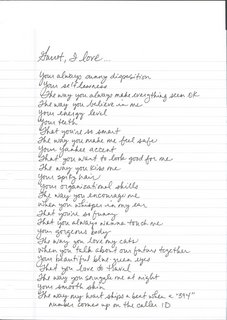 I love...
Your always sunny disposition
Your selflessness
The way you always make everything seem OK
The way you believe in me
Your energy level
Your teeth
That you're so smart
The way you make me feel safe
Your Yankee accent
That you want to look good for me
The way you kiss me
Your spiky hair
Your organizational skills
The way you encourage me
When you whisper in my ear
That you're so funny
That you always wanna touch me
Your gorgeous body
The way you love my cats
When you talk about our future together
Your beautiful blue-green eyes
That you love to travel
The way you snuggle me at night
Your smooth skin
The way my heart skips a beat when a "314"
number comes up on the caller ID